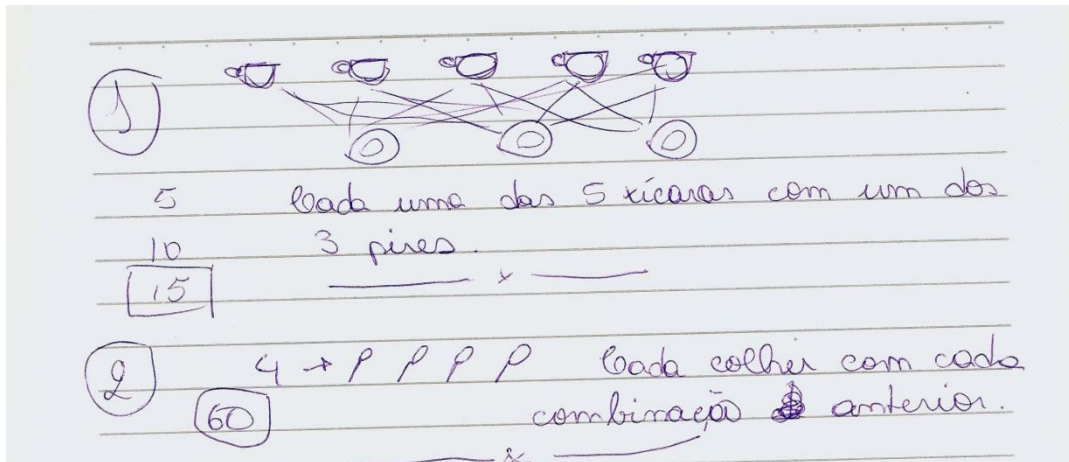 1
5 Cada uma das 5 xícaras com um dos
10 3 pires.
15 x
2 4 → Cada colher com cada
60 combinação anterior.